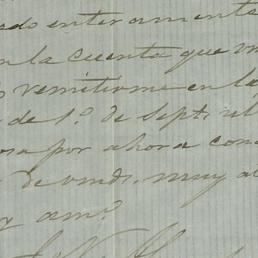 edo enteramente
n la cuenta que v
remitirme en la
de 1º. de Septe. ul
por ahora con
de vmds. muy a
y amo.